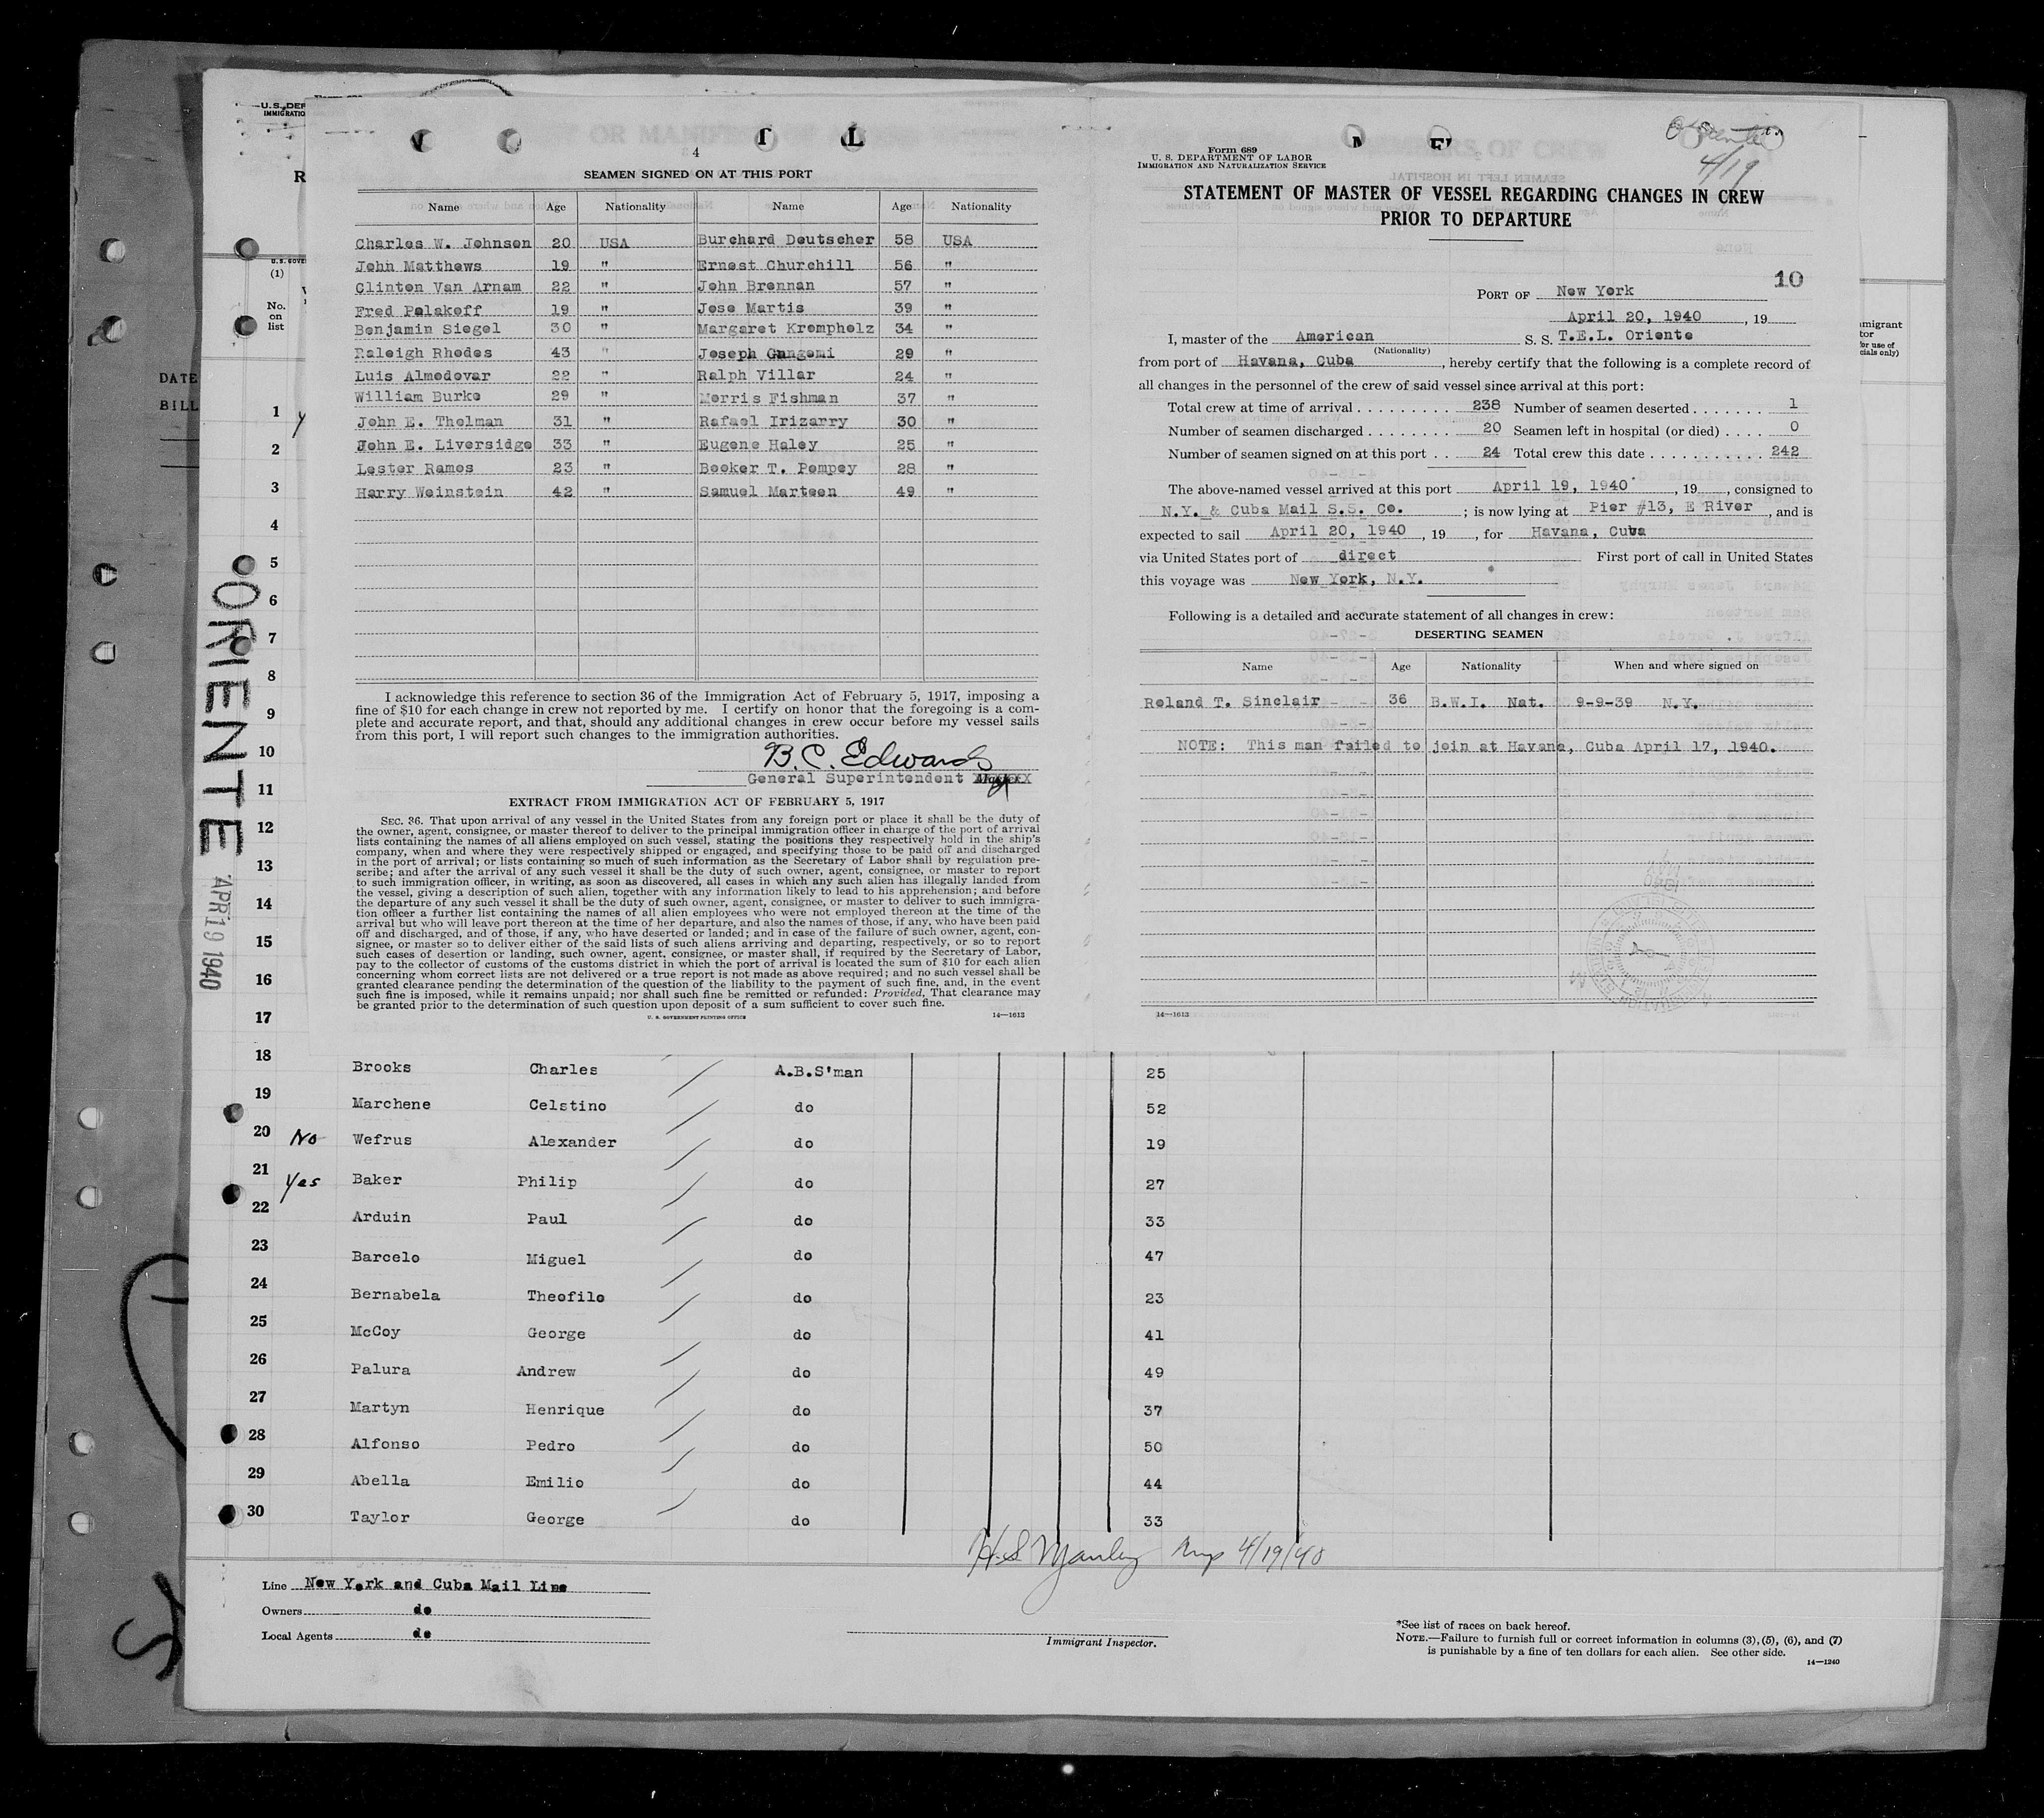 U.S. DEP
IMMIGRATIO
R
U.S. GOVE
(1)
No.
on
list
DATE
BILL
ORIENTE
APR 19 1940
4
SEAMEN SIGNED ON AT THIS PORT
Name Age Nationality Name Age Nationality
Charles W. Johnson 20 USA Burchard Deutscher 58 USA
John Matthews 19 " Ernest Churchill 56 "
Clinton Van Arnam 22 " John Brennan 57 "
Fred Polakoff 19 " Jose Martis 39 "
Benjamin Siegel 30 " Margaret Krompholz 34 "
Raleigh Rhodes 43 " Joseph Gangemi 29 "
Luis Almodovar 22 " Ralph Villar 24 "
William Burke 29 " Morris Fishman 37 "
John E. Tholman 31 " Rafael Irizarry 30 "
John E. Liversidge 33 " Eugene Haley 25 "
Lester Rames 23 " Booker T. Pompey 28 "
Harry Weinstein 42 " Samuel Marteen 49 "
I acknowledge this reference to section 36 of the Immigration Act of February 5, 1917, imposing a
fine of $10 for each change in crew not reported by me. I certify on honor that the foregoing is a com-
plete and accurate report, and that, should any additional changes in crew occur before my vessel sails
from this port, I will report such changes to the immigration authorities.
B. C. Edwards
General Superintendent
EXTRACT FROM IMMIGRATION ACT OF FEBRUARY 5, 1917
SEC. 36. That upon arrival of any vessel in the United States from any foreign port or place it shall be the duty of
the owner, agent, consignee, or master thereof to deliver to the principal immigration officer in charge of the port of arrival
lists containing the names of all aliens employed on such vessel, stating the positions they respectively hold in the ship's
company, when and where they were respectively shipped or engaged, and specifying those to be paid off and discharged
in the port of arrival; or lists containing so much of such information as the Secretary of Labor shall by regulation pre-
scribe; and after the arrival of any such vessel it shall be the duty of such owner, agent, consignee, or master to report
to such immigration officer, in writing, as soon as discovered, all cases in which any such alien has illegally landed from
the vessel, giving a description of such alien, together with any information likely to lead to his apprehension; and before
the departure of any such vessel it shall be the duty of such owner, agent, consignee, or master to deliver to such immigra-
tion officer a further list containing the names of all alien employees who were not employed thereon at the time of the
arrival but who will leave port thereon at the time of her departure, and also the names of those, if any, who have been paid
off and discharged, and of those, if any, who have deserted or landed; and in case of the failure of such owner, agent, con-
signee, or master so to deliver either of the said lists of such aliens arriving and departing, respectively, or so to report
such cases of desertion or landing, such owner, agent, consignee, or master shall, if required by the Secretary of Labor,
pay to the collector of customs of the customs district in which the port of arrival is located the sum of $10 for each alien
concerning whom correct lists are not delivered or a true report is not made as above required; and no such vessel shall be
granted clearance pending the determination of the question of the liability to the payment of such fine, and, in the event
such fine is imposed, while it remains unpaid; nor shall such fine be remitted or refunded: Provided, That clearance may
be granted prior to the determination of such question upon deposit of a sum sufficient to cover such fine.
U. S. GOVERNMENT PRINTING OFFICE 14—1613
Form 689
U. S. DEPARTMENT OF LABOR
IMMIGRATION AND NATURALIZATION SERVICE
4/19
STATEMENT OF MASTER OF VESSEL REGARDING CHANGES IN CREW
PRIOR TO DEPARTURE
10
PORT OF New York
April 20, 1940, 19
I, master of the American S. S. T.E.L. Oriente
(Nationality)
from port of Havana, Cuba, hereby certify that the following is a complete record of
all changes in the personnel of the crew of said vessel since arrival at this port:
Total crew at time of arrival . . . . . . . . . 238 Number of seamen deserted . . . . . . . 1
Number of seamen discharged . . . . . . . . 20 Seamen left in hospital (or died) . . . . 0
Number of seamen signed on at this port . . 24 Total crew this date . . . . . . . . . . . 242
The above-named vessel arrived at this port April 19, 1940, 19, consigned to
N.Y. & Cuba Mail S.S. Co. ; is now lying at Pier #13, E River, and is
expected to sail April 20, 1940, 19, for Havana, Cuba
via United States port of direct First port of call in United States
this voyage was New York, N.Y.
Following is a detailed and accurate statement of all changes in crew:
DESERTING SEAMEN
Name Age Nationality When and where signed on
Roland T. Sinclair 36 B.W.I. Nat. 9-9-39 N.Y.
NOTE: This man failed to join at Havana, Cuba April 17, 1940.
14—1613
mmigrant
tor
for use of
cials only)
1
2
3
4
5
6
7
8
9
10
11
12
13
14
15
16
17
18 Brooks Charles A.B.S'man 25
19 Marchene Celstino do 52
20 No Wefrus Alexander do 19
21 Yes Baker Philip do 27
22 Arduin Paul do 33
23 Barcelo Miguel do 47
24 Bernabela Theofilo do 23
25 McCoy George do 41
26 Palura Andrew do 49
27 Martyn Henrique do 37
28 Alfonso Pedro do 50
29 Abella Emilio do 44
30 Taylor George do 33
H.S. Manley Insp 4/19/40
Line New York and Cuba Mail Line
Owners do
Local Agents do
Immigrant Inspector.
*See list of races on back hereof.
NOTE.—Failure to furnish full or correct information in columns (3), (5), (6), and (7)
is punishable by a fine of ten dollars for each alien. See other side.
14—1240